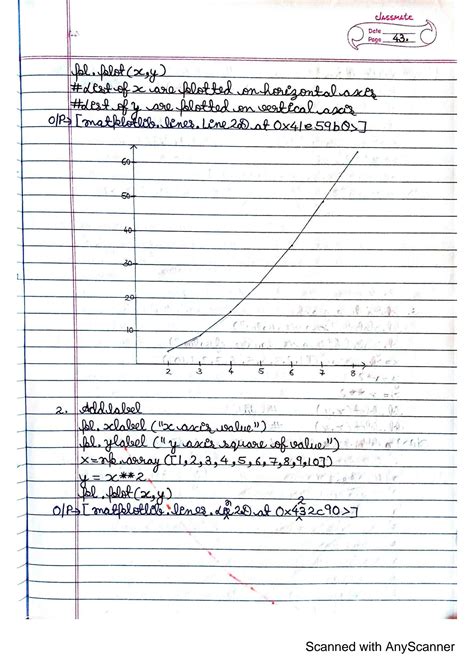 classmate
Date
Page 43.
pl.plot(x,y)
#List of x are plotted on horizontal axis
#List of y are plotted on vertical axis
O/P→[matplotlib.lines.Line2D at 0x41e59b0>]
60
50
40
30
20
10
2 3 4 5 6 7 8
2. Add label
pl.xlabel("x axis value")
pl.ylabel("y axis square of value")
x=np.array([1,2,3,4,5,6,7,8,9,10])
y = x**2
pl.plot(x,y)
O/P→[matplotlib.lines. 2D at 0x4322c90>]
Scanned with AnyScanner